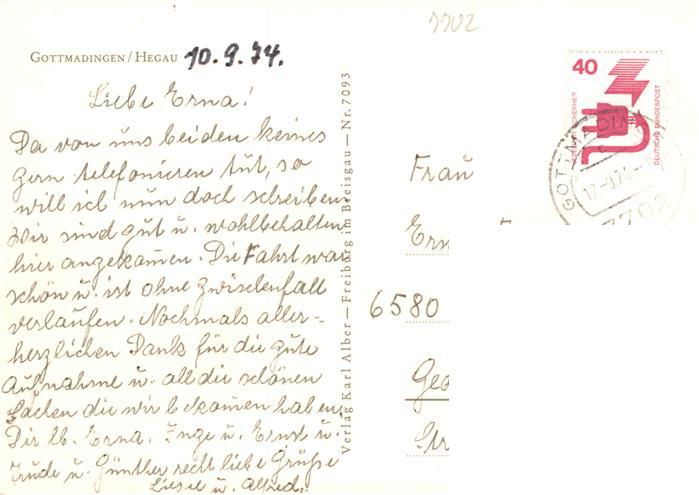 7702
GOTTMADINGEN/HEGAU 10.9.74.
Liebe Erna!
Da von uns beiden keines
gern telefonieren tut, so
will ich nun doch schreiben
Wir sind gut u. wohlbehalten
hier angekommen. Die Fahrt war
schön u. ist ohne Zwischenfall
verlaufen. Nochmals aller-
herzlichen Dank für die gute
Aufnahme u. all die schönen
Sachen die wir bekommen haben.
Dir lb. Erna, Inge u. Ernst u.
Trude u. Günther recht liebe Grüße
Liesel u. Alfred.
Verlag Karl Alber—Freiburg im Breisgau—Nr. 7093
40
DEUTSCHE BUNDESPOST
7702
Frau
Ern
6580